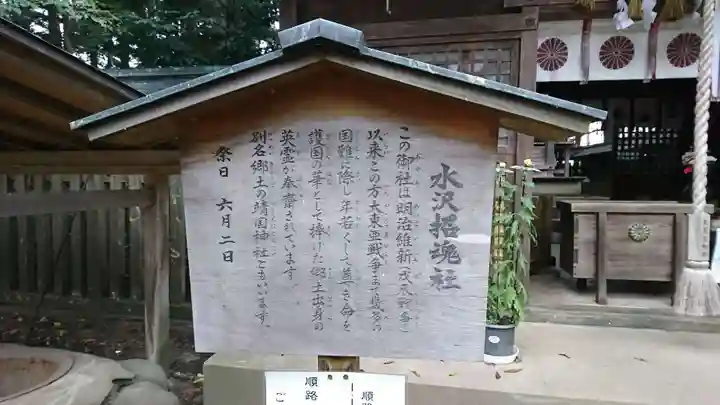 水沢招魂社
この御社は明治維新(戊辰戦争)
以来この方大東亜戦争まで幾多の
国難に際し年若くして尊き命を
護国の華として捧げた郷土出身の
英霊が奉齋されています
別名郷土の靖国神社ともいいます。
祭日 六月二日
順路
順路